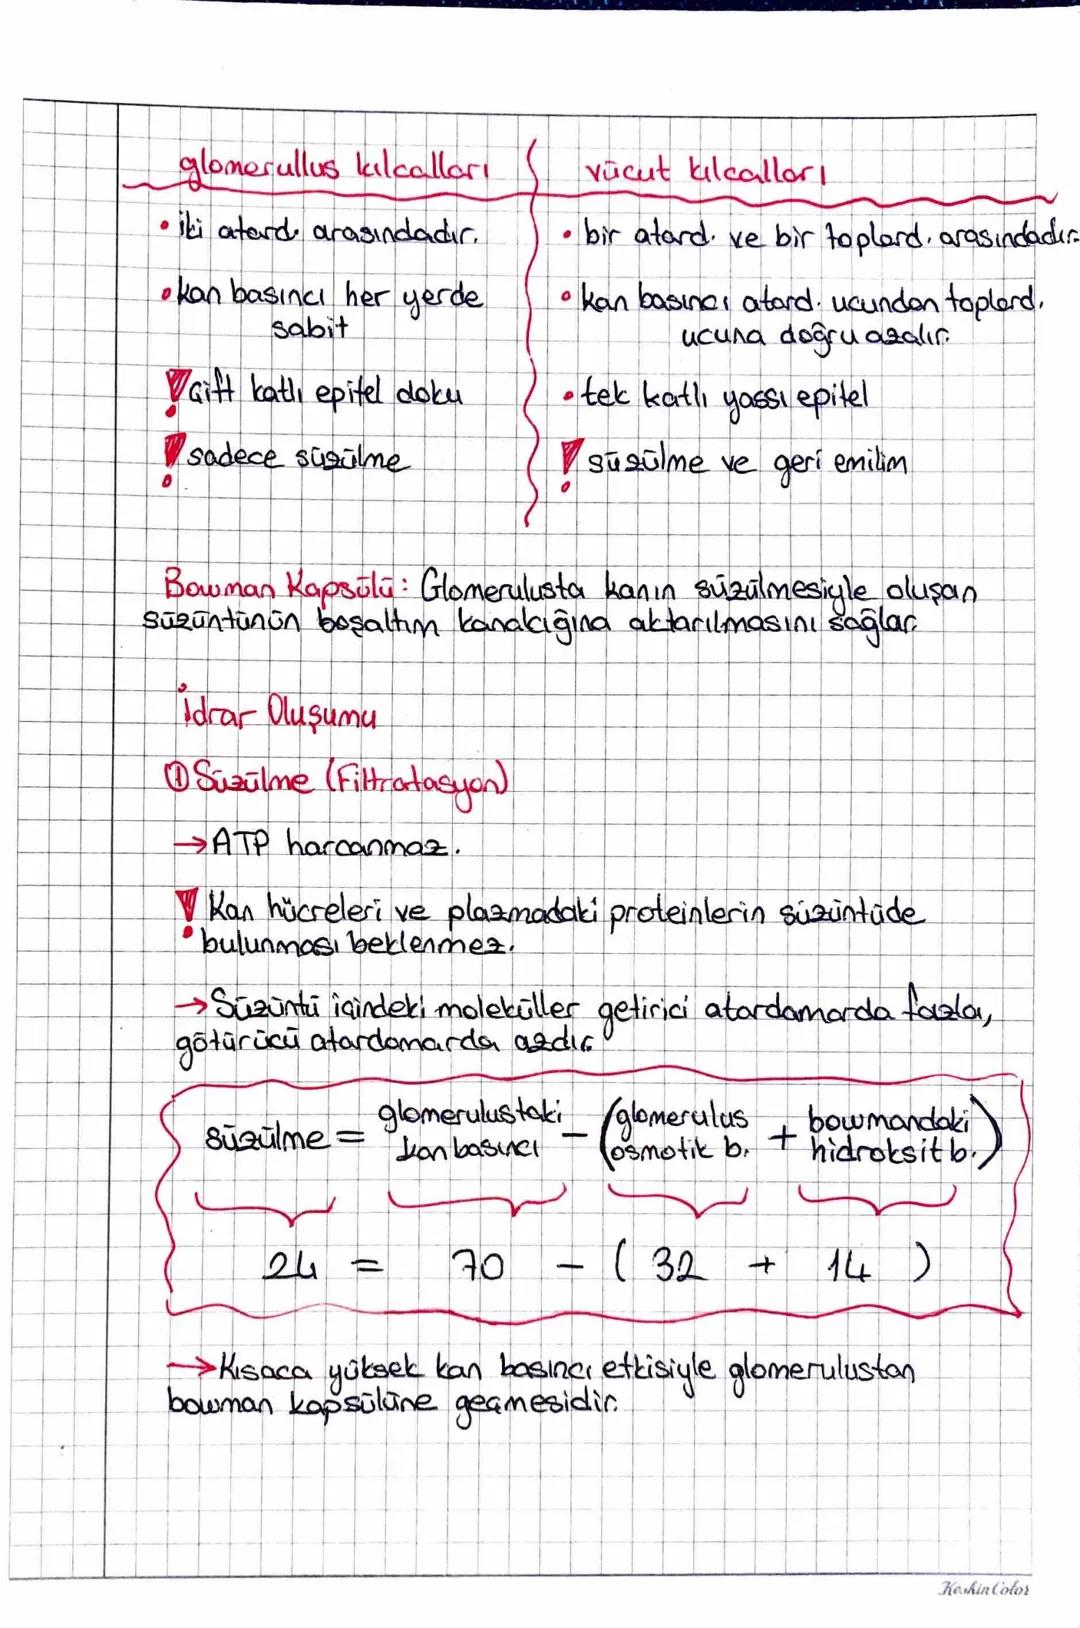 glomerullus kılcalları
vücut kılcalları
• iki atard. arasındadır.
• bir atard. ve bir toplard. arasındadır.
• kan basıncı her yerde
sabit
• kan basıncı atard. ucundan toplard.
ucuna doğru azalır.
! Çift katlı epitel doku
• tek katlı yassı epitel
! sadece süzülme
! süzülme ve geri emilim
Bowman Kapsülü: Glomerulusta kanın süzülmesiyle oluşan
süzüntünün boşaltım kanalcığına aktarılmasını sağlar.
İdrar Oluşumu
① Süzülme (Filtratasyon)
→ ATP harcanmaz.
! Kan hücreleri ve plazmadaki proteinlerin süzüntüde
bulunması beklenmez.
→ Süzüntü içindeki moleküller getirici atardamarda fazla,
götürücü atardamarda azdır.
süzülme = glomerulustaki kan basıncı - (glomerulus osmotik b. + bowmandaki hidroksit b.)
24 = 70 - ( 32 + 14 )
→ Kısaca yüksek kan basıncı etkisiyle glomerulustan
bowman kapsülüne geçmesidir.
KeskinColor